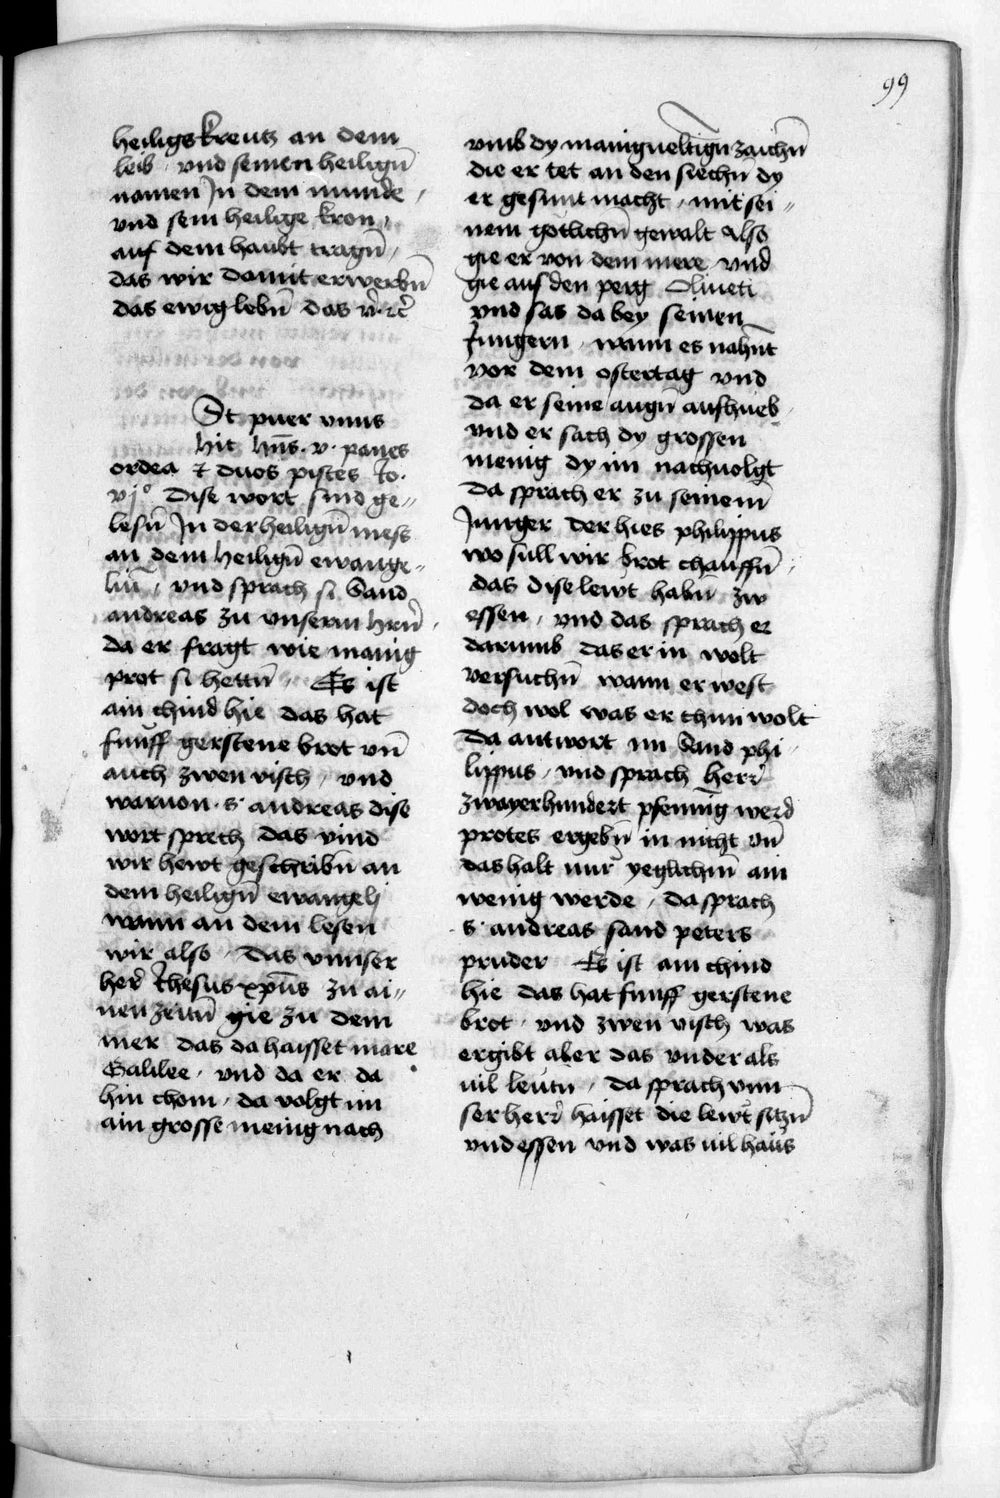 99
heiligs kreutz an dem
leib · vnd seinen heiligñ
namen Jn dem munde ,
vnd sein heilige kron ,
auf dem haubt tragñ ,
das wir damit erwerbñ
das ewig lebñ das v̾ · rc̃
St puer vnus
hic hñs · v · panes
ordea & duos pisces Jo ·
vjº Dise wort sind ge„
lesñ Jn der heiligñ mess
an dem heiligñ ewange„
liũ , vnd sprach si Sand
andreas zu vnserm hrñ ,
da er fragt wie manig
prot si hettñ , Es ist
ain chind hie das hat
funff gerstene brot vñ
auch zwen visch , vnd
warvon · s · andreas dise
wort sprech das vind
wir hewt geschribñ an
dem heiligñ ewangelj
wann an dem lesen
wir also , Das vnnser
her̾ Jhesus xp̃us zu ai„
nen zeitñ gie zu dem
mer das da haisset mare
Galilee , vnd da er da
hin chom , da volgt im
ain grosse menig nach
vmb dy manigueltigñ zaichñ
die er tet an den siechñ dy
er gesunt macht , mit sei„
nem götlichñ gewalt Also
gie er von dem mere vnd
gie auf den perg Oliueti
vnd sas da bey seinen
Jungern , wann es nahñt
vor dem ostertag vnd
da er seine augñ aufhueb ,
vnd er sach dy grossen
menig dy im nachuolgt
da sprach er zu seinem
Junger der hies philippus
wo sull wir brot chauffñ ,
das dise lewt habñ zw
essen , vnd das sprach er
darumb das er in wolt
versuchñ wann er west
doch wol was er thun wolt
Da antwort im Sand phi ,
lippus , vnd sprach herr̾
zwayerhundert pfennig werd
protes ergebñ in nicht vñ
das halt nur yeglichm̃ ain
wenig werde , da sprach
· s · andreas sand peters
pruder Es ist ain chind
hie das hat funff gerstene
brot · vnd zwen visch was
ergibt aber das vnder als
uil leutñ , Da sprach vnn
ser herr̾ haisset die lewt sitzñ
vnd essen vnd was uil haüs